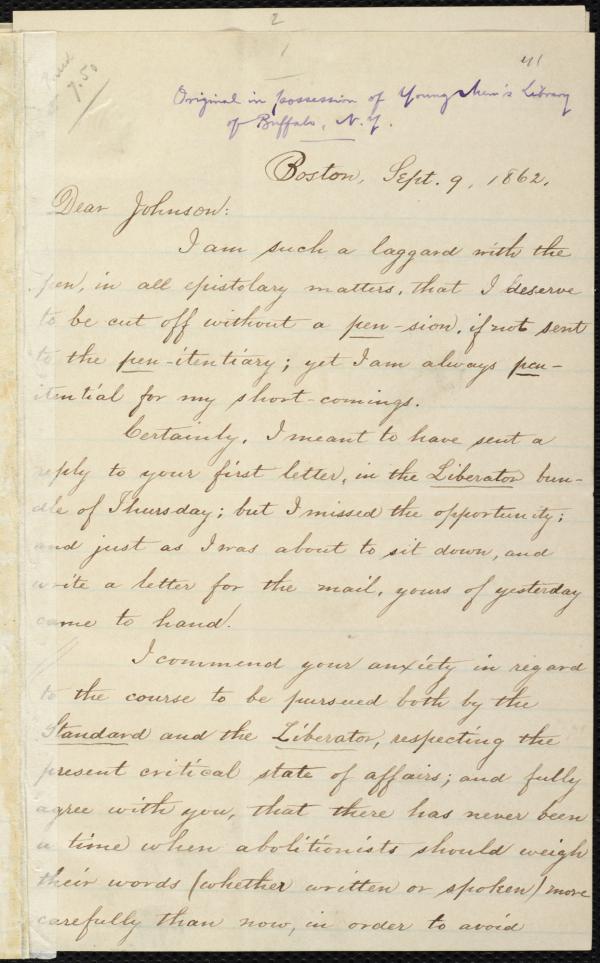 2
1
41
7.50
Original in possession of Young Men's Library
of Buffalo, N.Y.
Boston, Sept. 9, 1862.
Dear Johnson:
I am such a laggard with the
pen, in all epistolary matters, that I deserve
to be cut off without a pen-sion, if not sent
to the pen-itentiary; yet I am always pen-
itential for my short-comings.
Certainly, I meant to have sent a
reply to your first letter, in the Liberator bun-
dle of Thursday; but I missed the opportunity;
and just as I was about to sit down, and
write a letter for the mail, yours of yesterday
came to hand.
I commend your anxiety in regard
to the course to be pursued both by the
Standard and the Liberator, respecting the
present critical state of affairs; and fully
agree with you, that there has never been
a time when abolitionists should weigh
their words (whether written or spoken) more
carefully than now, in order to avoid